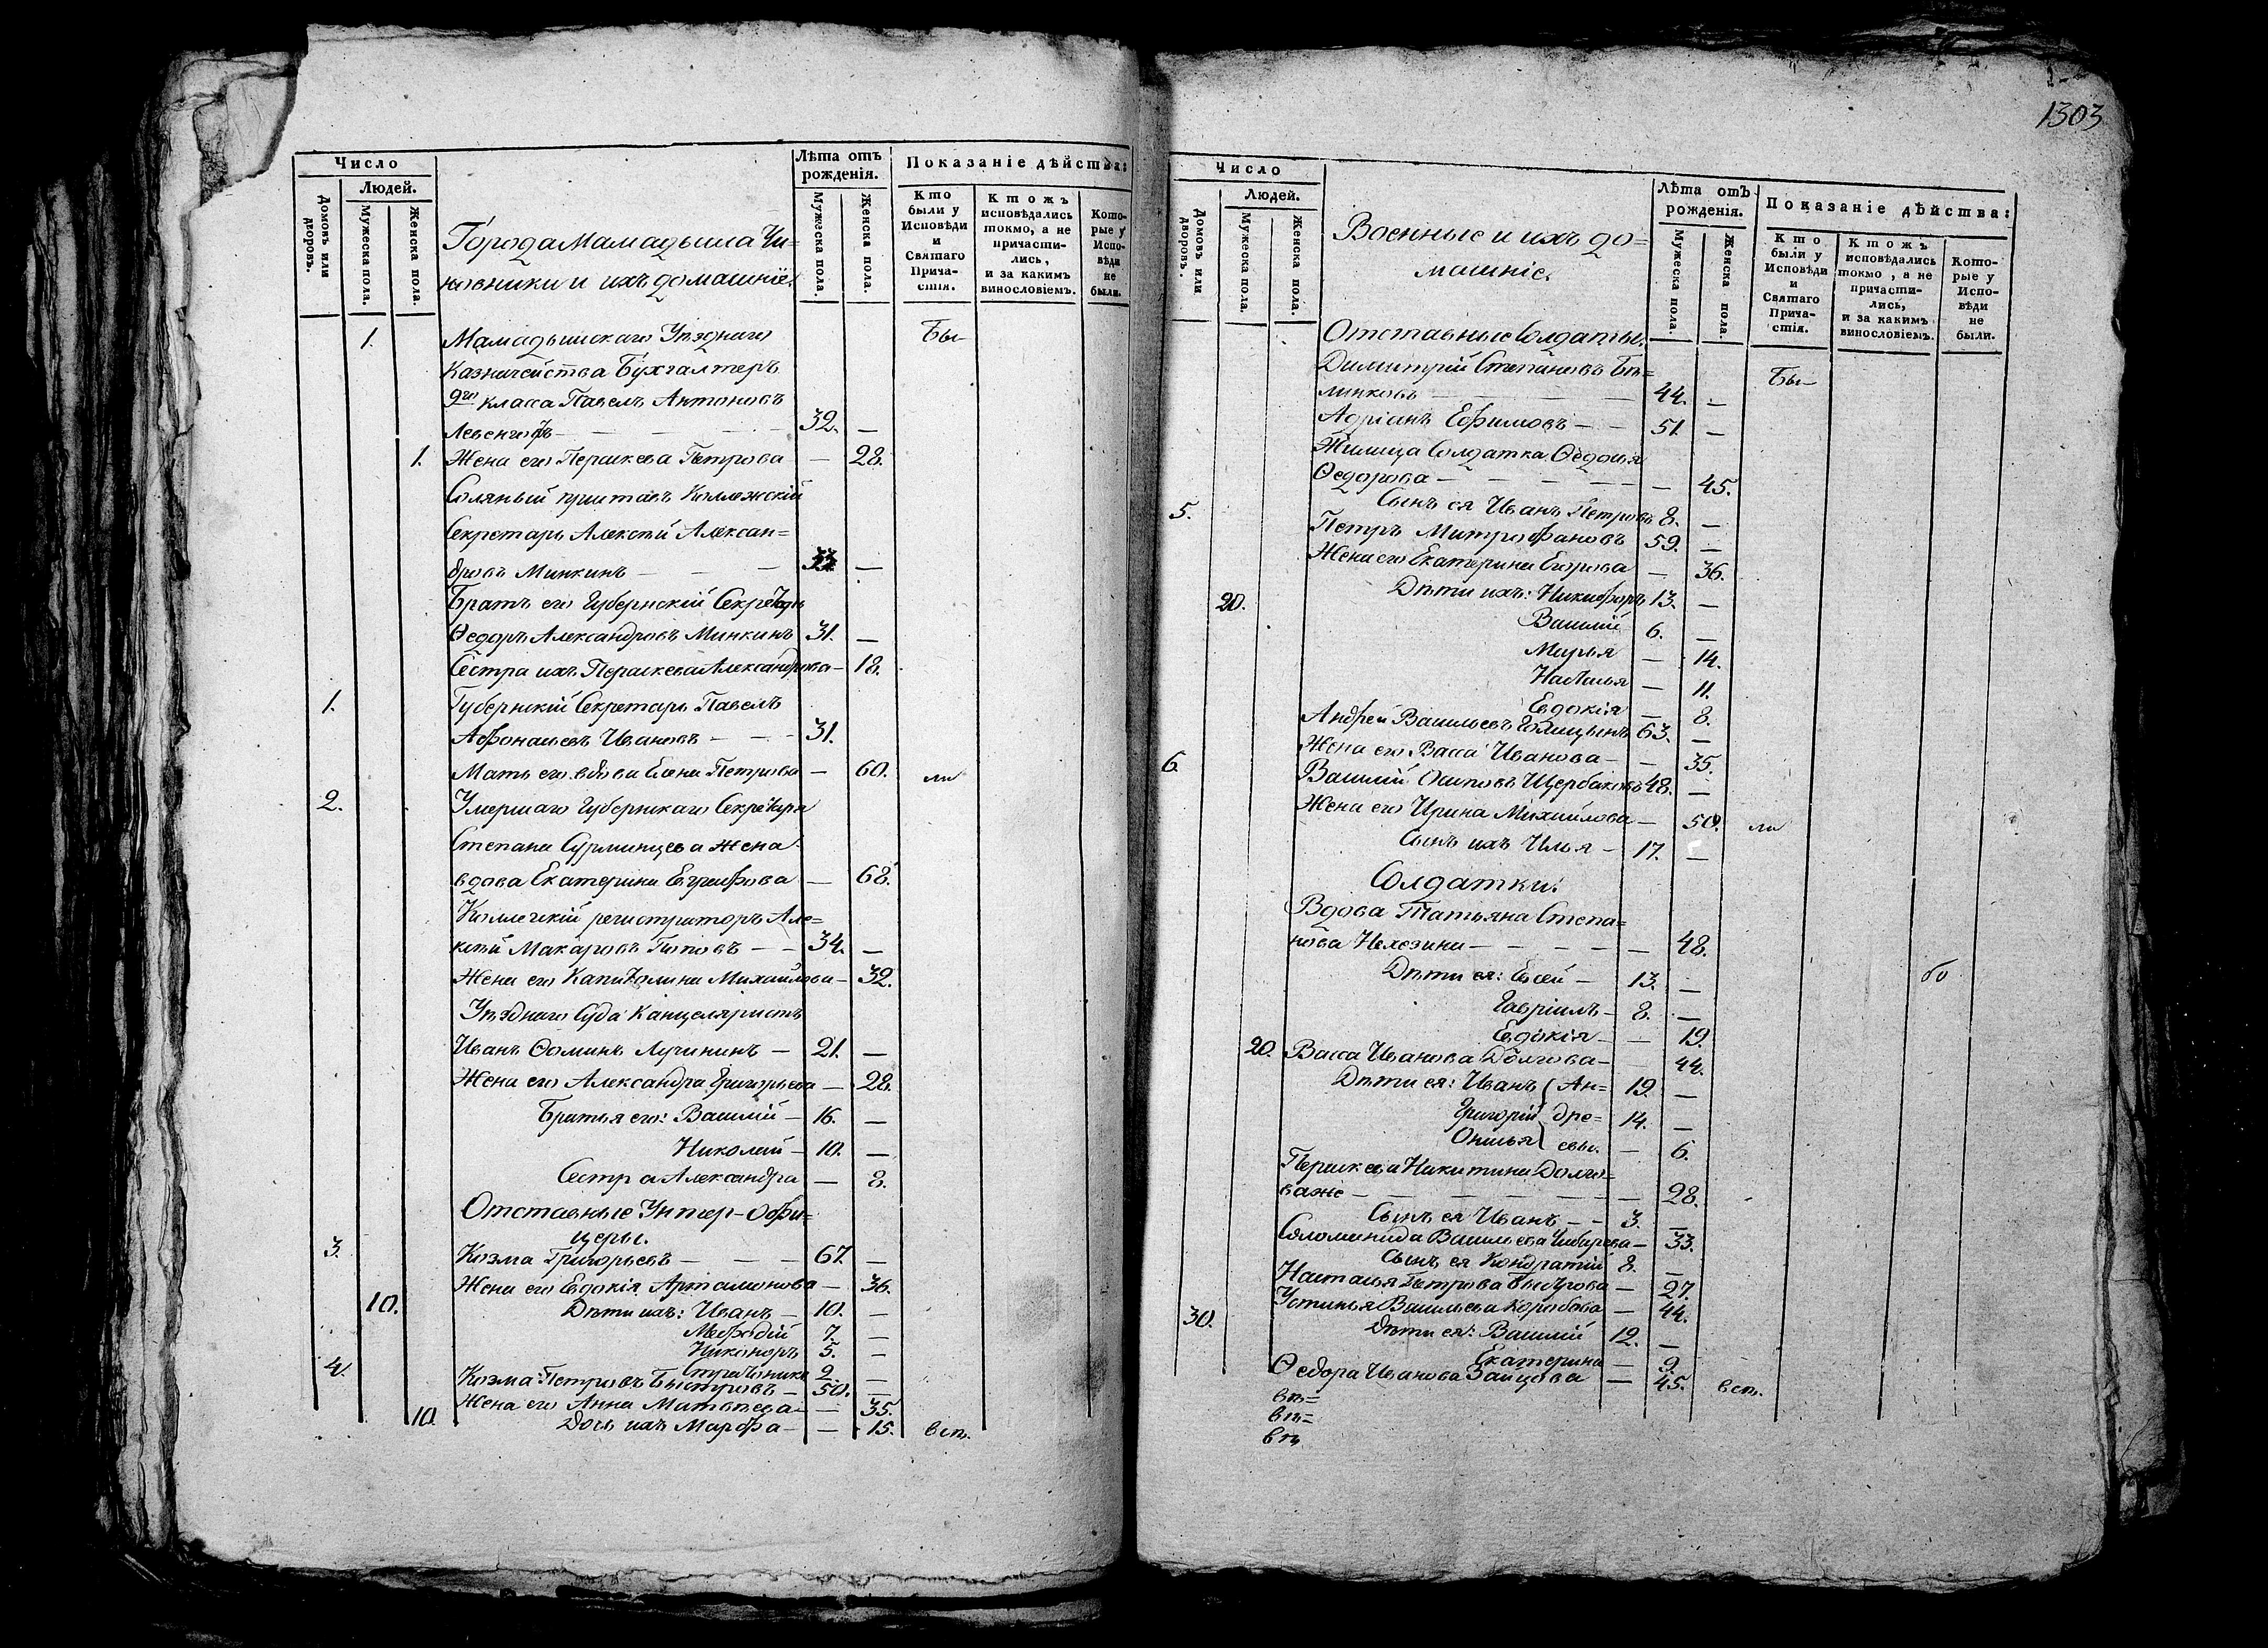 Число
Людей.
Домовъ или дворовъ.
Мужеска пола.
Женска пола.
Города Мамадыша Чи=
новники и ихъ домашніе.
Лѣта отъ рожденія.
Мужеска пола.
Женска пола.
Показаніе дѣйства:
Кто были у Исповѣди и Святаго Прича- стія.
Ктожъ исповѣдались токмо, а не причасти- лись, и за какимъ винословіемъ.
Кото- рые у Испо- вѣди не были.
1. Мамадышскаго Уѣзднаго Бы
Казначейства Бухгалтеръ
9го класса Павелъ Антоновъ
Левенгофъ — 32. —
1. Жена его Параскева Петрова — 28.
Соляный приставъ Коллежскій
Секретарь Алексѣй Алексан=
дровъ Минкинъ — —
Братъ его Губернскій Секретарь
Ѳедоръ Александровъ Минкинъ 31. —
Сестра ихъ Параскева Александрова — 18.
1. Губернскій Секретарь Павелъ
Афонасьевъ Ивановъ — 31.
Мать его вдова Елена Петрова — 60. ли
2. Умершаго Губернскаго Секретаря
Степана Сурминцева жена
вдова Екатерина Евграфова — 68.
Коллежскій регистраторъ Але=
ксѣй Макаровъ Поповъ — 34. —
Жена его Капитолина Михайлова — 32.
Уѣзднаго Суда Канцеляристъ
Иванъ Ѳоминъ Лучининъ — 21. —
Жена его Александра Григорьева — 28.
Братья его: Василій — 16. —
Николай — 10. —
Сестра Александра — 8.
Отставные Унтер-Офи=
церы.
3. Козма Григорьевъ — 67. —
Жена его Евдокія Артамонова — 36.
10. Дѣти ихъ: Иванъ — 10. —
Мефодій 7. —
Никаноръ 5. —
Стратоникъ 2. —
4. Козма Петровъ Быстровъ — 50. —
Жена его Анна Матвѣева — 35.
10. Дочь ихъ Марфа — 15. всѣ.
1303
Число
Людей.
Домовъ или дворовъ.
Мужеска пола.
Женска пола.
Военные и ихъ до=
машніе.
Лѣта отъ рожденія.
Мужеска пола.
Женска пола.
Показаніе дѣйства:
Кто были у Исповѣди и Святаго Прича- стія.
Ктожъ исповѣдались токмо, а не причасти- лись, и за какимъ винословіемъ.
Кото- рые у Испо- вѣди не были.
Отставные Солдаты.
Димитрій Степановъ Бѣ= Бы
линковъ — 44. —
Адріанъ Ефимовъ — 51. —
Жилица Солдатка Ѳедосья
Ѳедорова — 45.
5. Сынъ ея Иванъ Петровъ 8. —
Петръ Митрофановъ 59. —
Жена его Екатерина Егорова — 36.
20. Дѣти ихъ: Никифоръ 13. —
Василій 6. —
Марья — 14.
Наталья — 11.
Евдокія — 8.
Андрей Васильевъ Голицынъ 63. —
Жена его Васса Иванова — 35.
6. Василій Осиповъ Щербаковъ 48. —
Жена его Ирина Михайлова — 50. ли
Сынъ ихъ Илья — 17. —
Солдатки:
Вдова Татьяна Степа=
нова — 48.
Дѣти ея: Евсей — 13. — бо
Гавріилъ — 8. —
Евдокія — 19.
20. Васса Иванова Долгова — 44.
Дѣти ея: Иванъ Ан= 19. —
Григорій дре= 14. —
евы. — 6.
Параскева Никитина Долго=
важе — 28.
Сынъ ея Иванъ — 3. —
Соломанида Васильева — 33.
Сынъ ея Кондратій 8. —
Настасья Петрова — 27.
30. Устинья Васильева Коробова — 44.
Дѣти ея: Василій 12. —
Екатерина — 9.
Ѳедора Иванова Зайцова — 45. всѣ.
вѣ=
вѣ=
вѣ